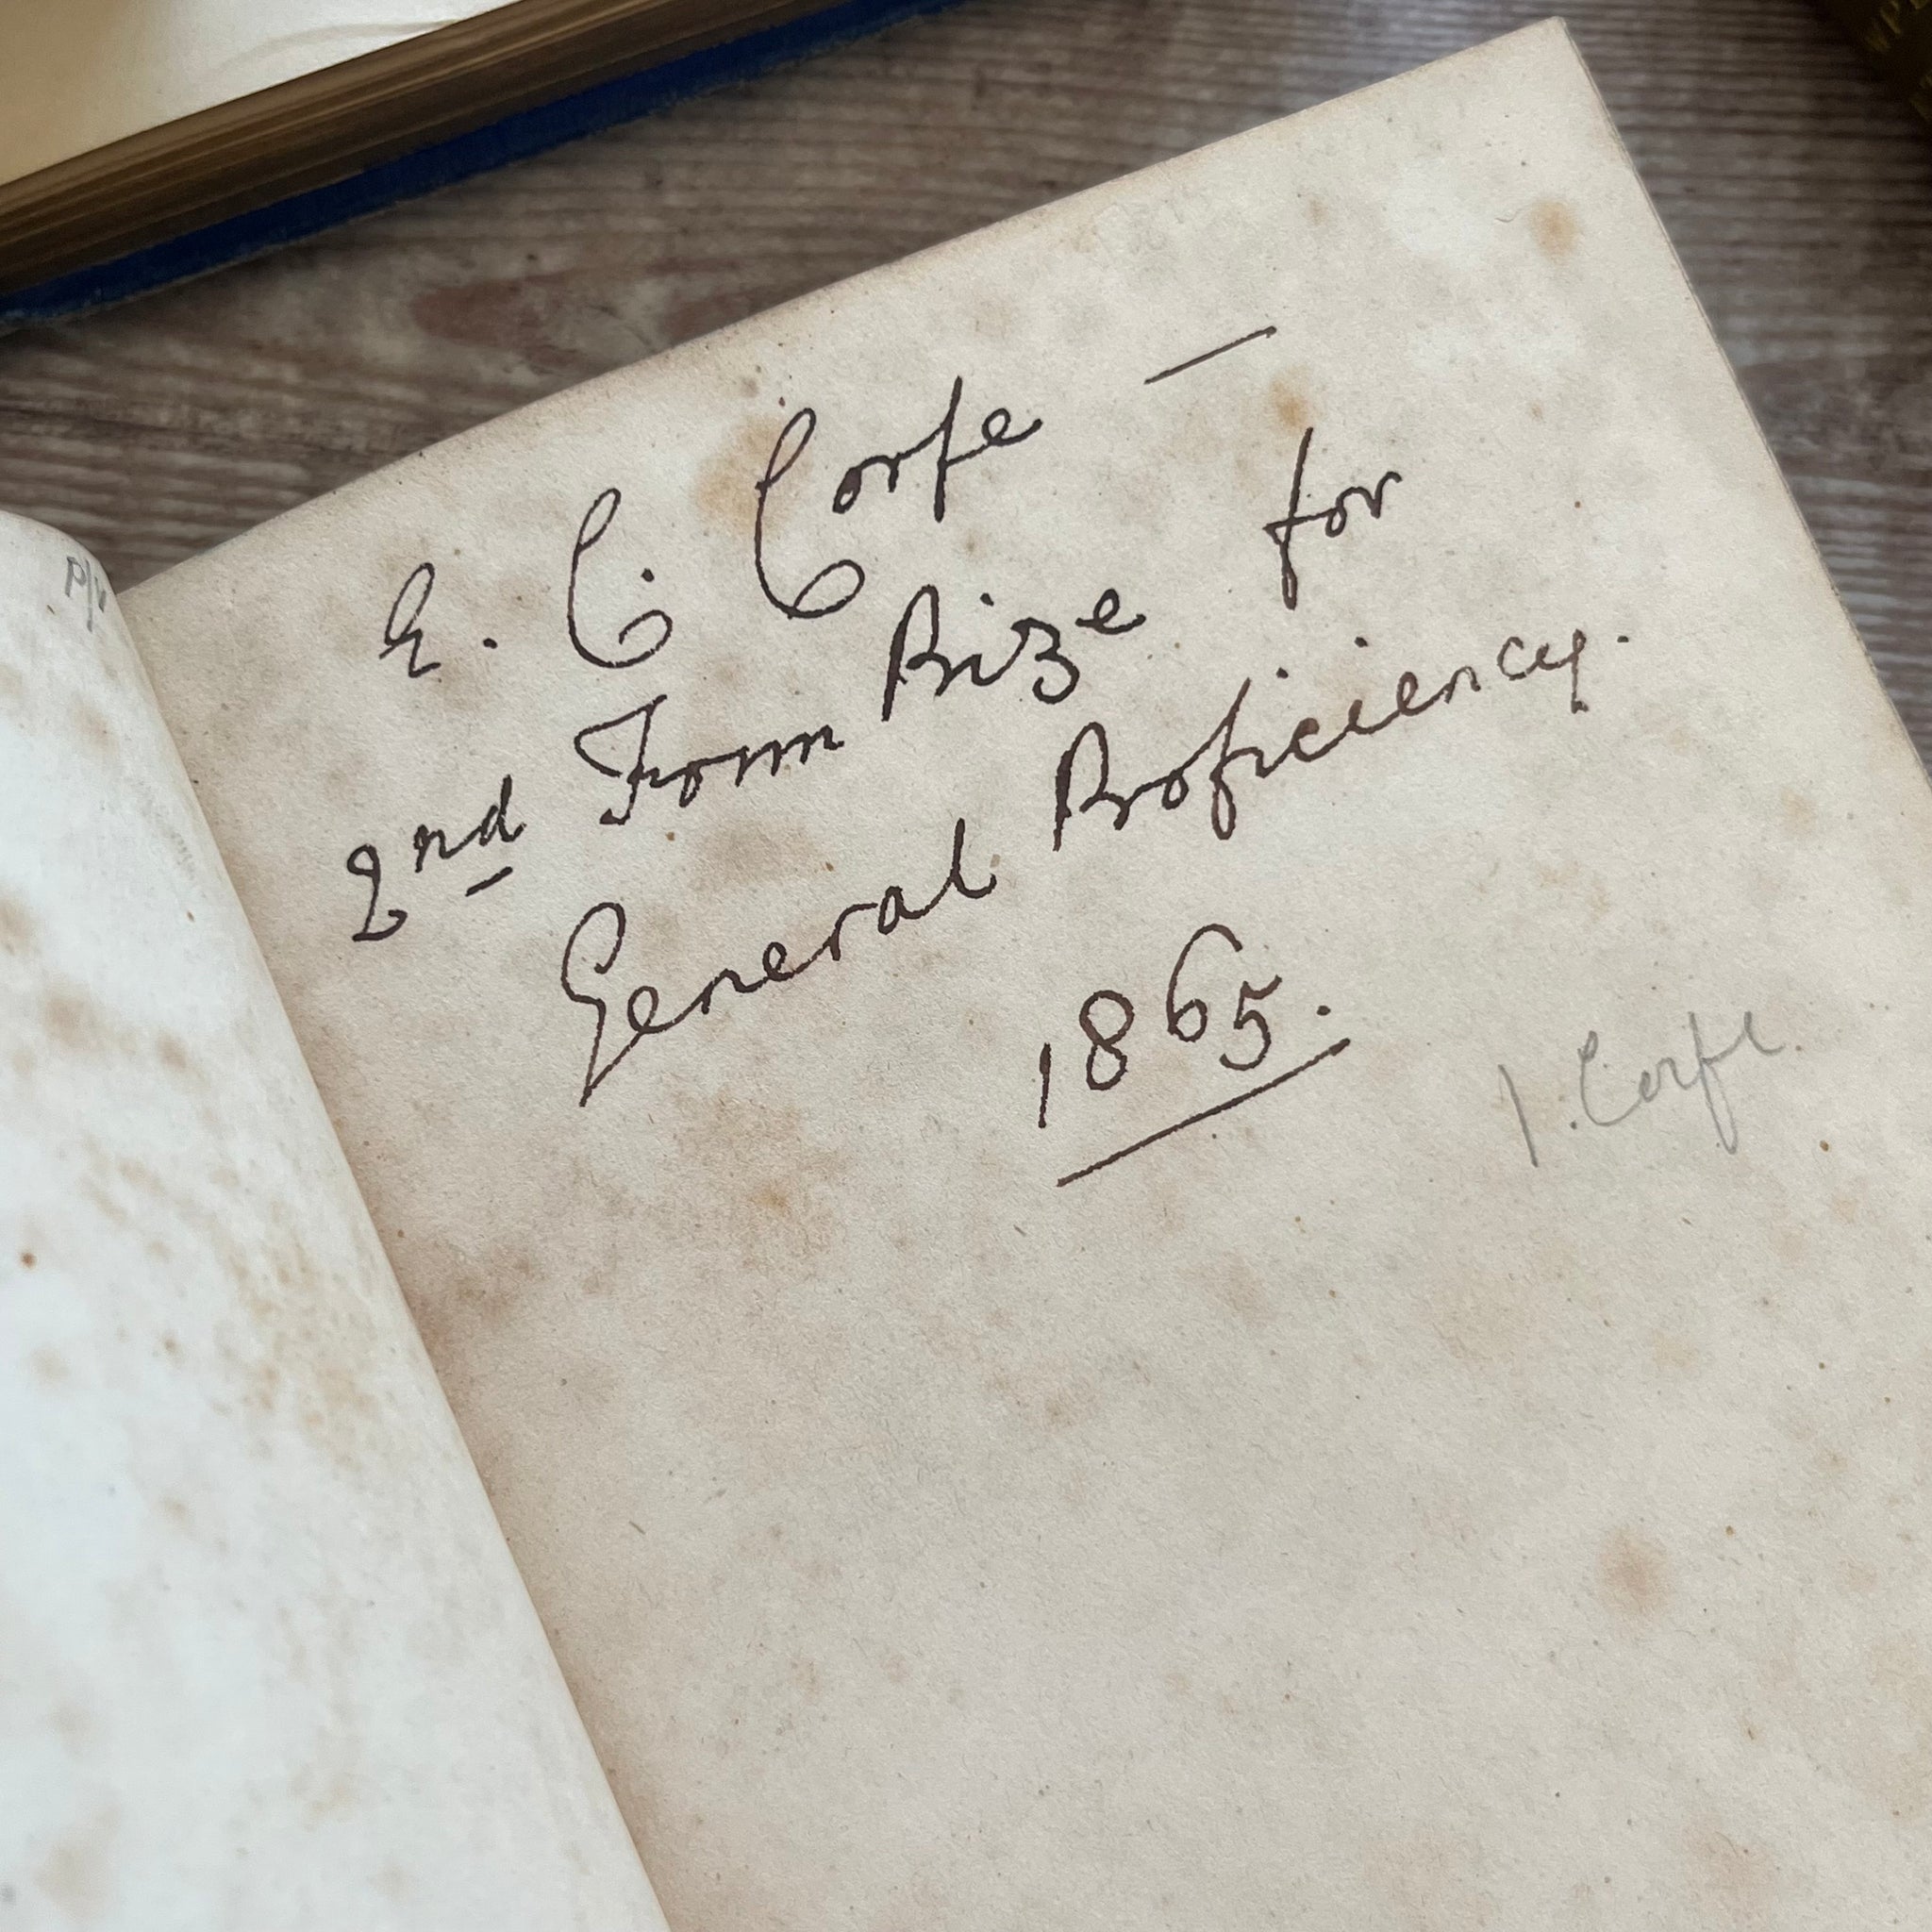 E. C. Corfe —
2nd Form Prize for
General Proficiency.
1865.
Corfe.